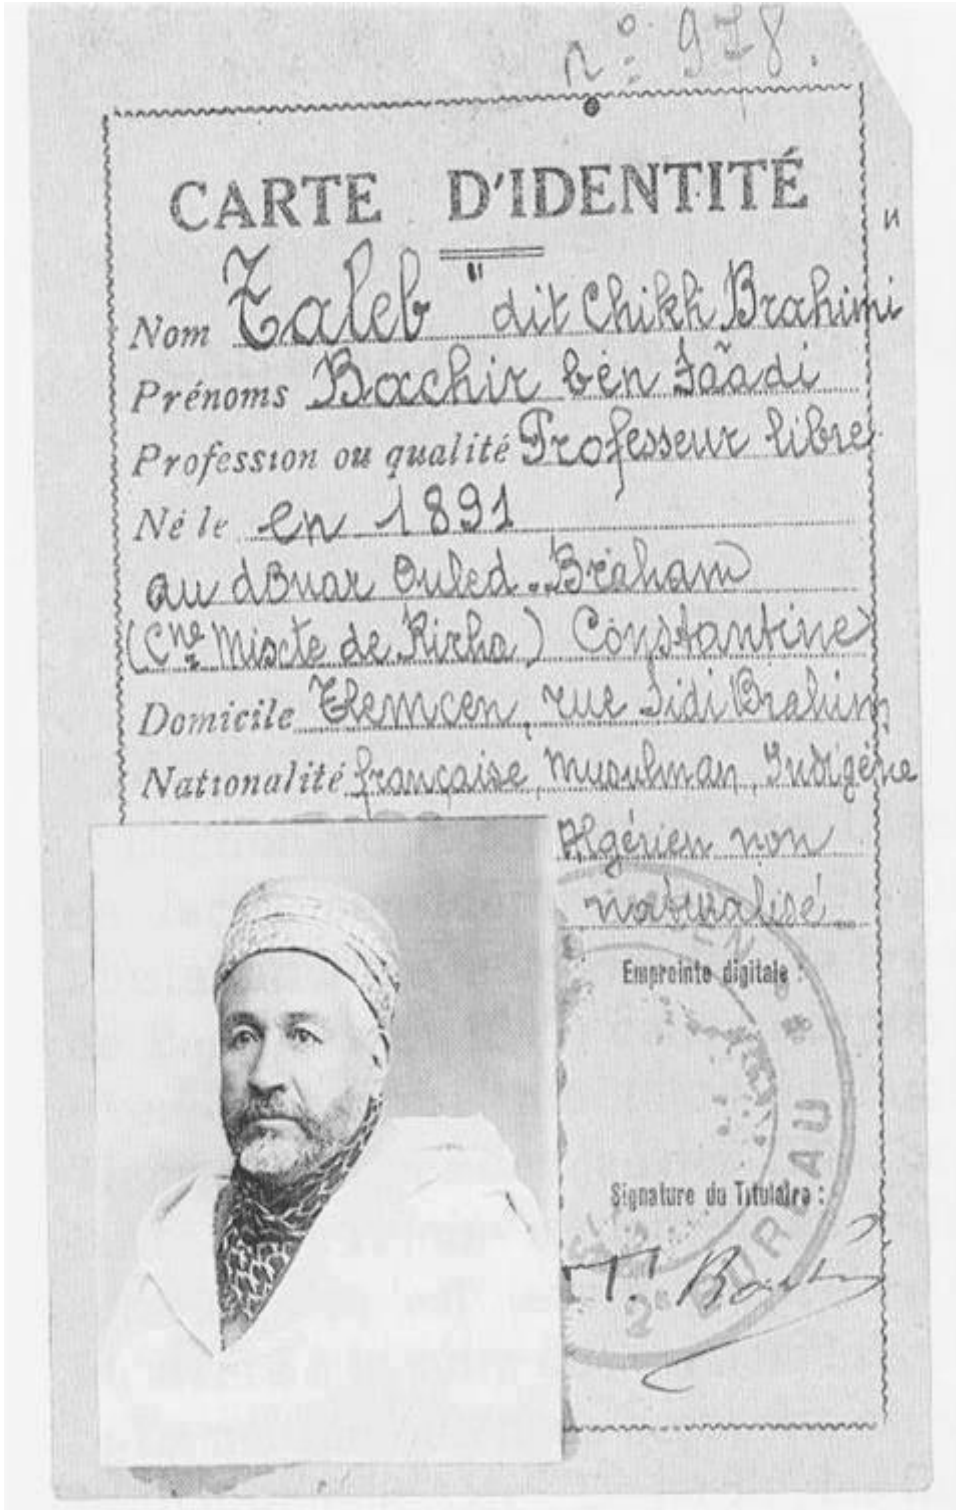 n° 978.
CARTE D'IDENTITÉ
Nom Taleb "dit Chikh Brahimi"
Prénoms Bachir bèn Sâadi
Profession ou qualité Professeur libre
Né le en 1891
au douar Ouled-Braham
(Cne Mixte de Rirha) Constantine
Domicile Tlemcen, rue Sidi Brahim
Nationalité française, Musulman, Indigène
Algérien non
naturalisé
Empreinte digitale :
Signature du Titulaire :
2e BUREAU